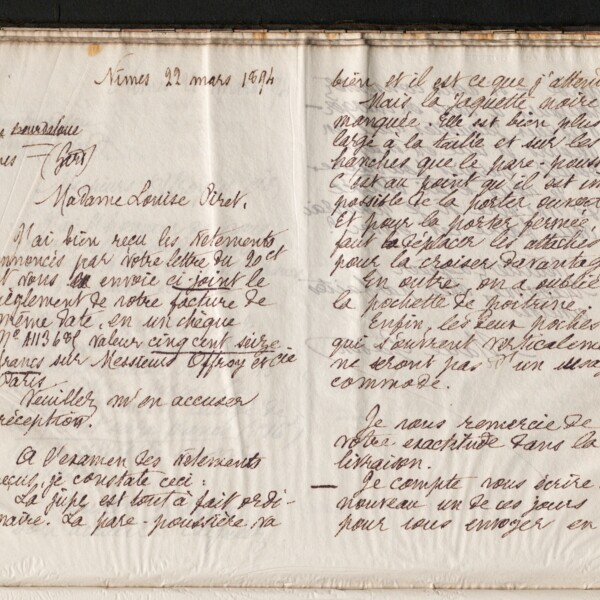 Nîmes 22 mars 1894
Bourdaloue
(Gard)
Madame Louise Piret.
J'ai bien reçu les vêtements
nnoncés par votre lettre du 20 ct
t vous envoie ci-joint le
règlement de votre facture de
même date, en un chèque
N° A113685 valeur cinq cent seize
francs sur Messieurs Offroy et Cie
Paris
Veuillez m'en accuser
réception.
A l'examen des vêtements
reçus, je constate ceci:
La jupe est tout à fait ordi-
naire. La pare-poussière va
bien et il est ce que j'attend
Mais la jaquette noire
manquée. Elle est bien plus
large à la taille et sur les
hanches que le pare-pouss
C'est au point qu'il est im
possible de la porter ouvert
Et pour la porter fermée,
faut déplacer les attaches
pour la croiser davantag
En outre, on a oublié
la pochette de poitrine.
Enfin, les deux poches
qui s'ouvrent verticaleme
ne seront pas d'un usag
commode.
Je vous remercie de
votre exactitude dans la
livraison.
Je compte vous écrire
nouveau un de ces jours
pour vous envoyer en